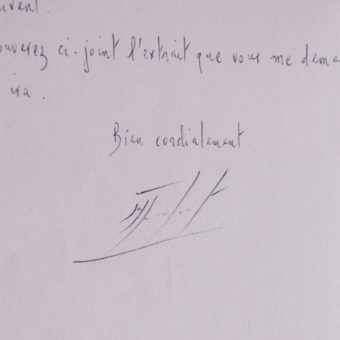 uvent.
ouverez ci-joint l'extrait que vous me dema
ira.
Bien cordialement